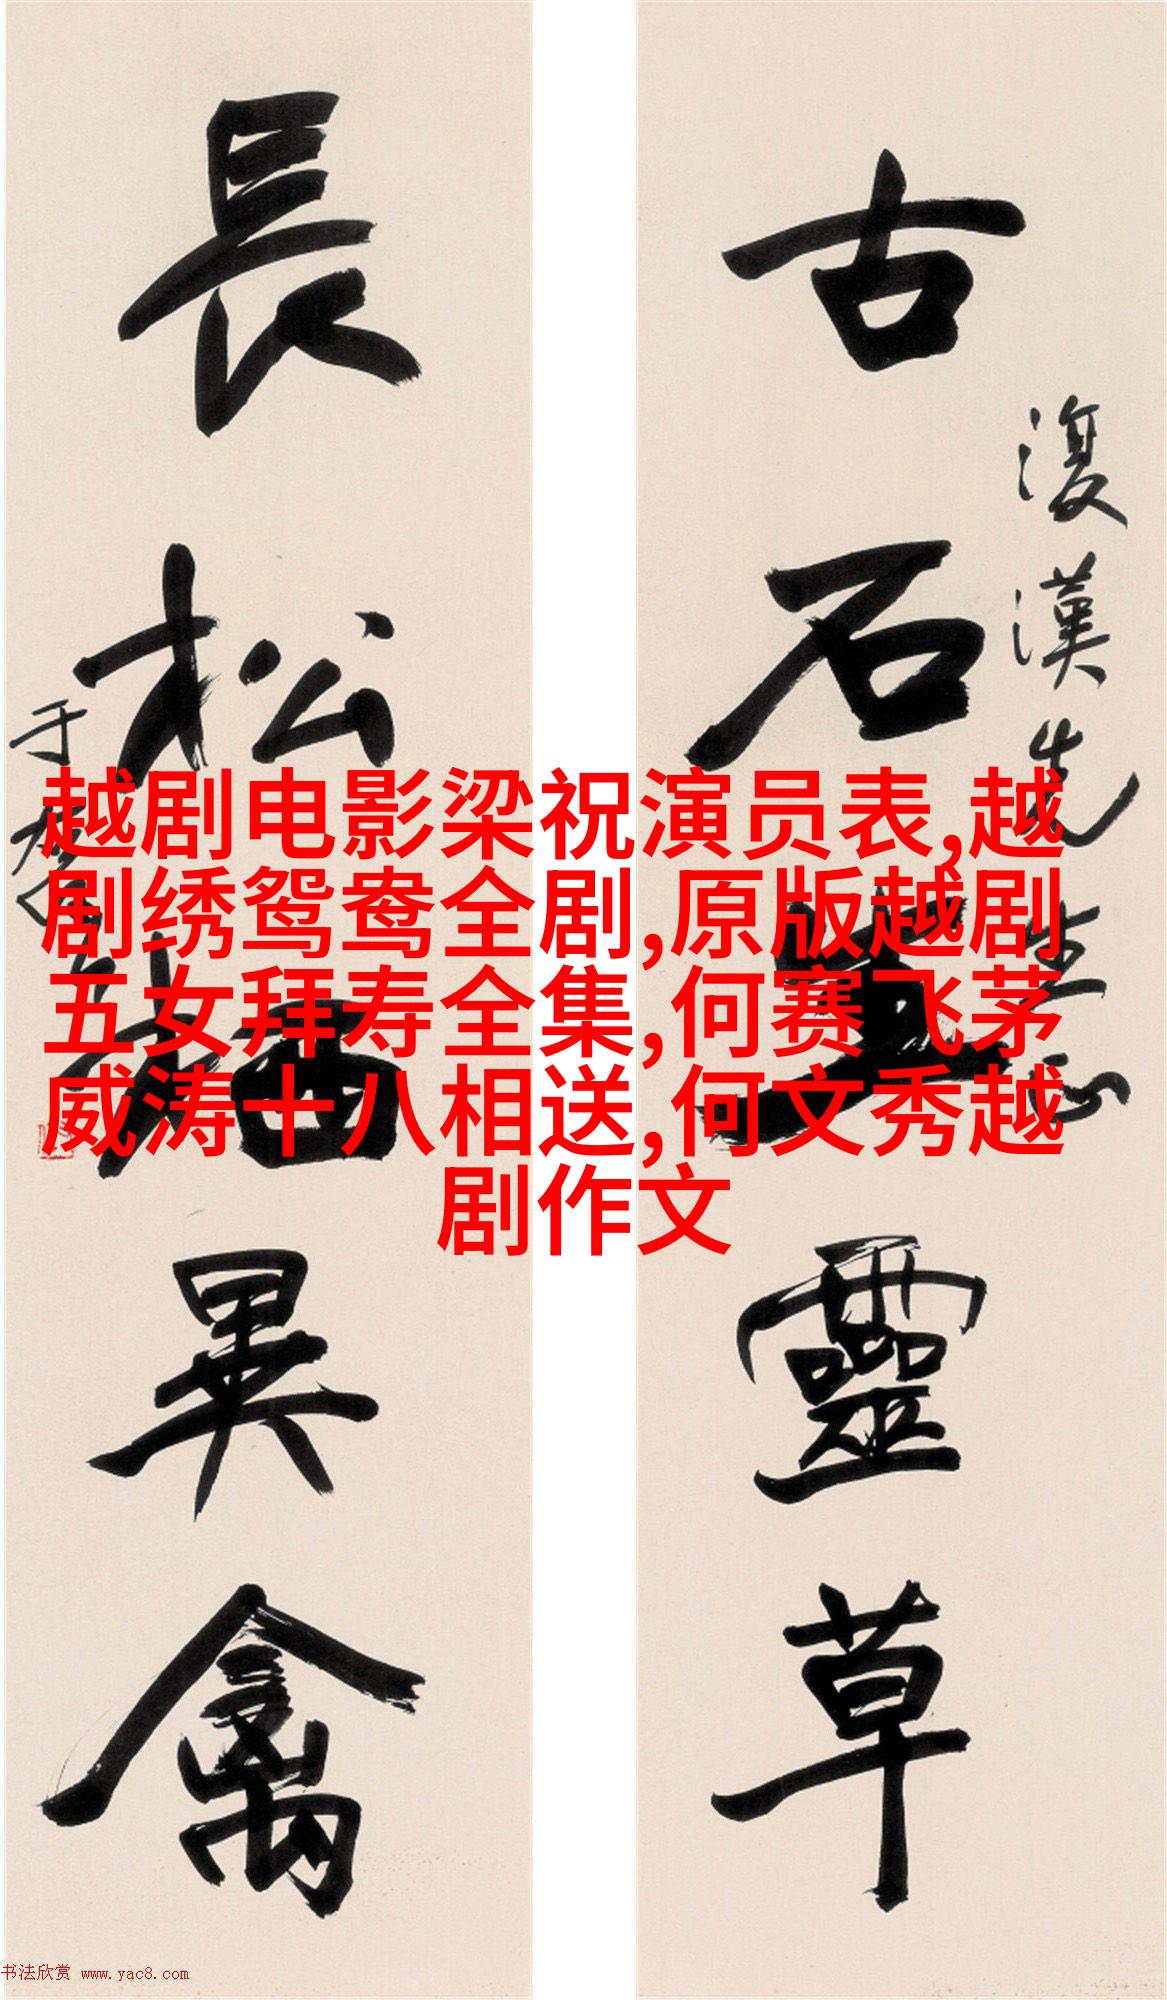 古石生靈草
復漢先生正
長松栖異禽
于右任
越剧电影梁祝演员表,越
剧绣鸳鸯全剧,原版越剧
五女拜寿全集,何赛飞茅
威涛十八相送,何文秀越
剧作文
书法欣赏 www.yac8.com